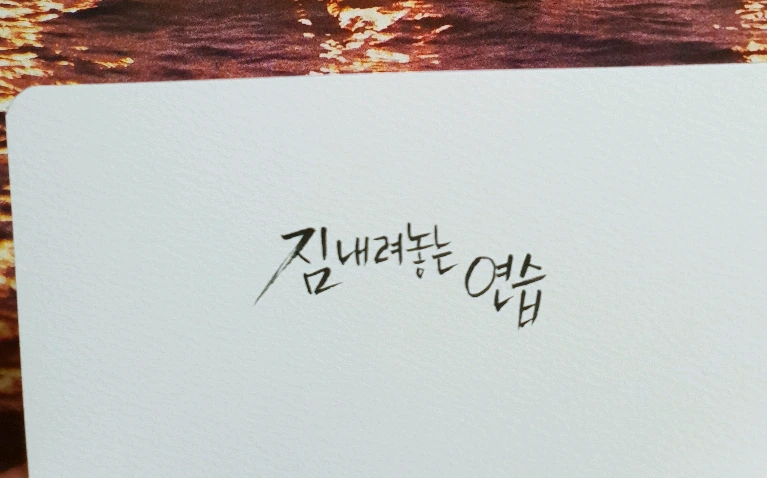 짐 내려놓는 연습